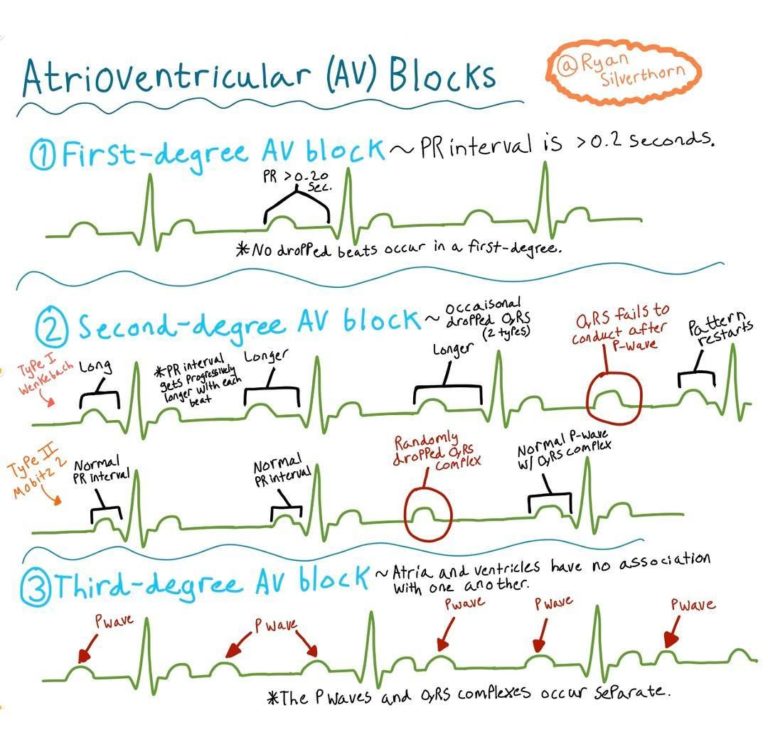 Atrioventricular (AV) Blocks
@Ryan
Silverthorn
① First-degree AV block ~ PR interval is >0.2 seconds.
PR >0.20
Sec.
*No dropped beats occur in a first-degree.
② Second-degree AV block ~ occaisonal
dropped QRS
(2 types)
QRS fails to
conduct after
P-wave
Pattern
restarts
Type I
Wenkebach
Long
*PR interval
gets progressively
longer with each
beat
Longer
Longer
Type II
Mobitz 2
Normal
PR interval
Normal
PR interval
Randomly
dropped QRS
complex
Normal P-wave
w/ QRS complex
③ Third-degree AV block ~ Atria and ventricles have no association
with one another.
P wave
P wave
P wave
P wave
P wave
*The P waves and QRS complexes occur separate.